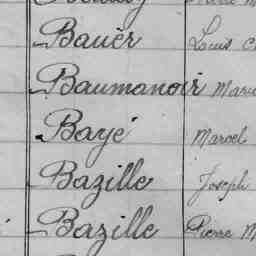 Bauër Louis C
Baumanoir Mar
Bayé Marcel
Bazille Joseph
Bazille Pierre M